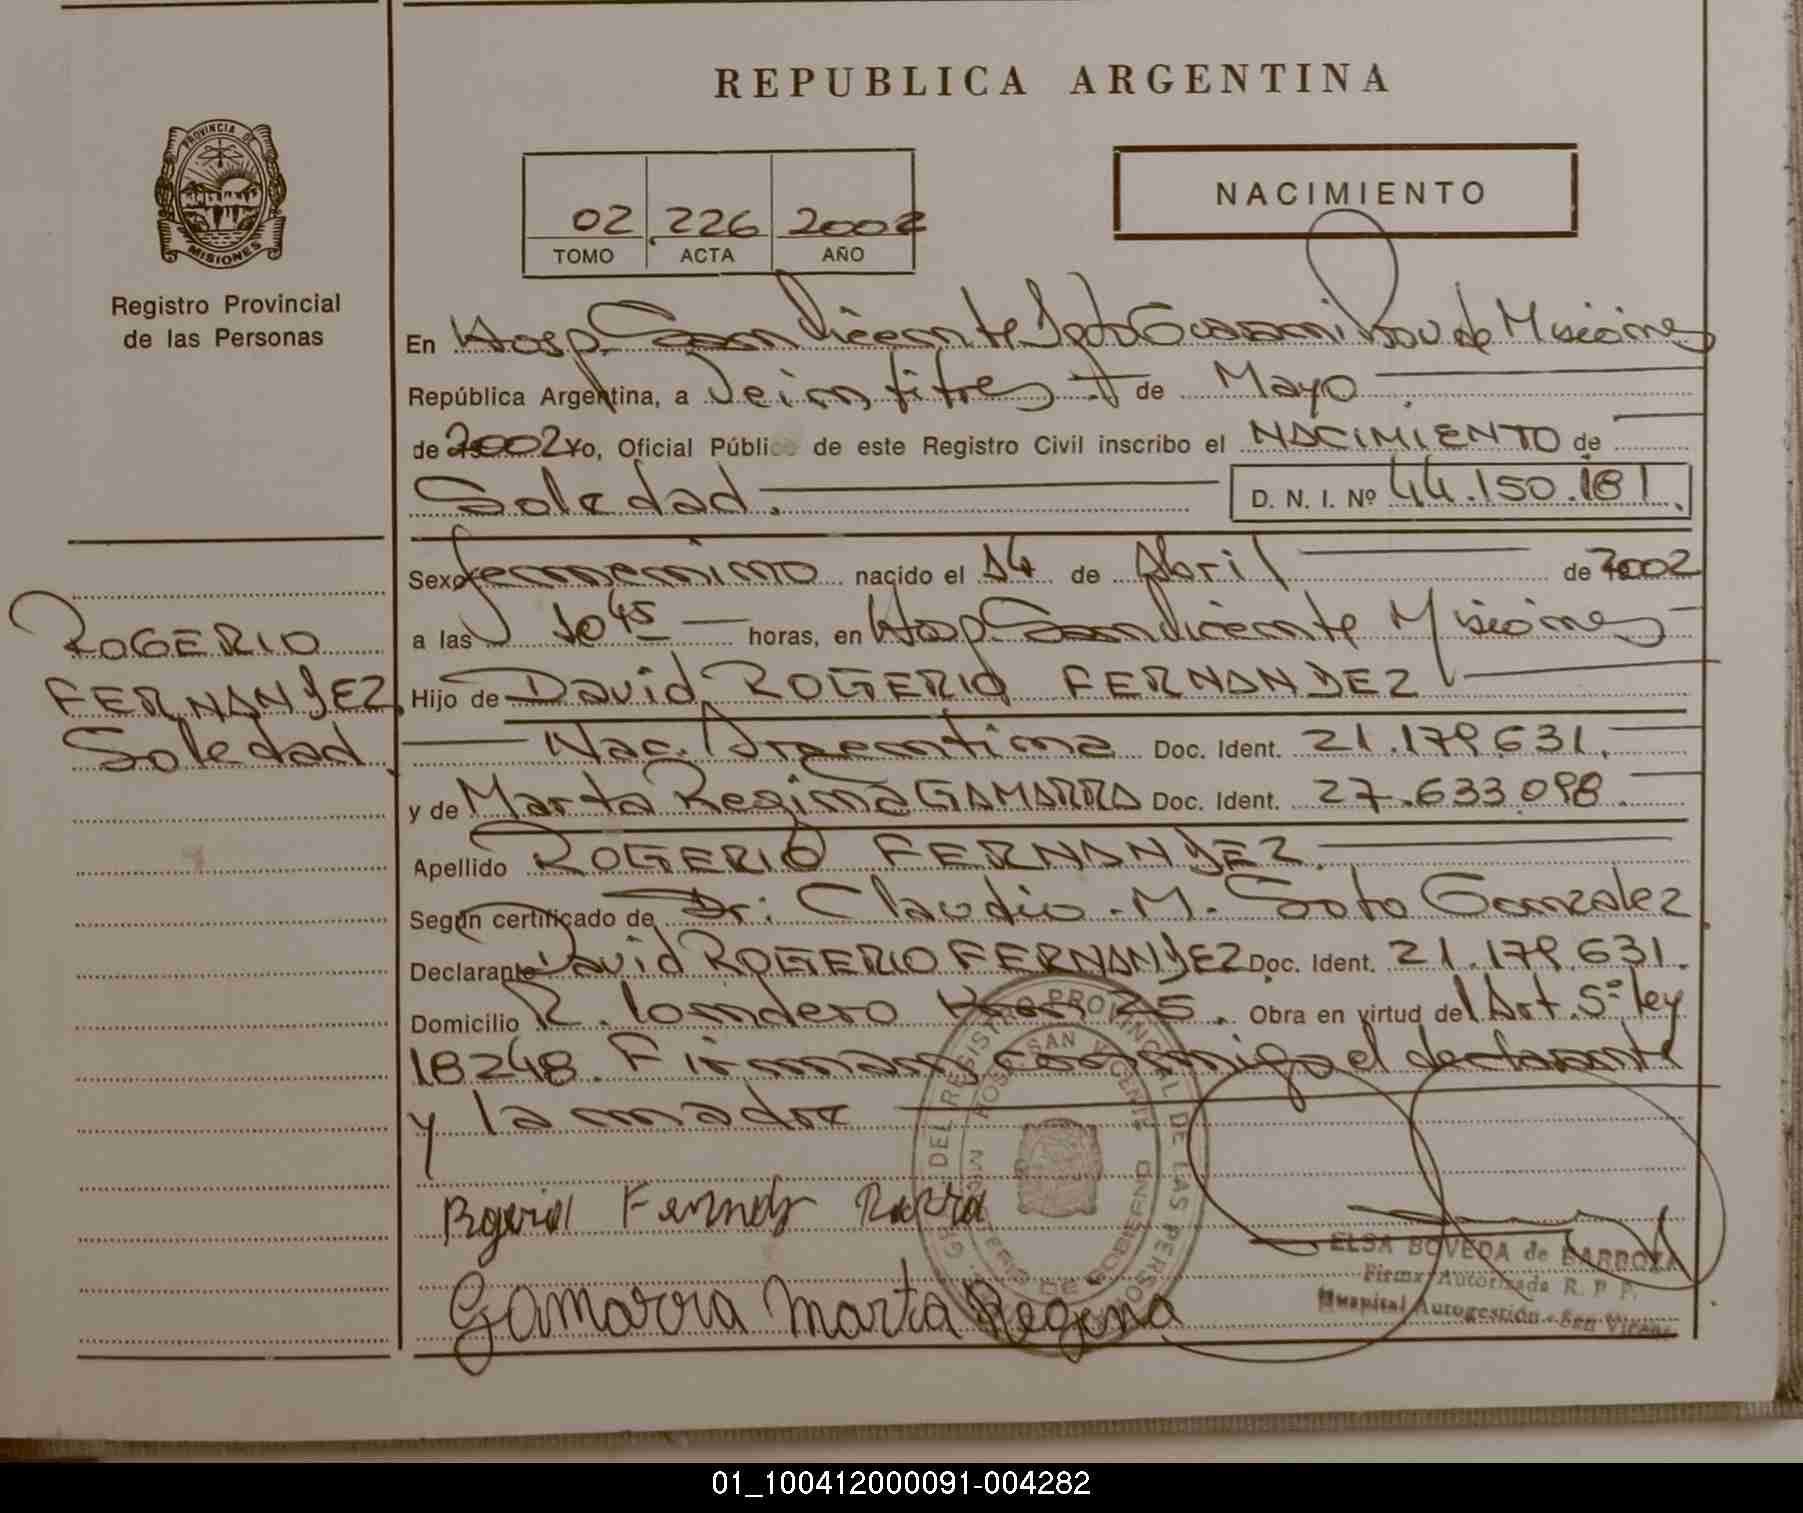 REPUBLICA ARGENTINA
PROVINCIA DE
MISIONES
Registro Provincial
de las Personas
02 226 2002
TOMO ACTA AÑO
NACIMIENTO
En Hosp. San Vicente Dpto Guarani Prov de Misiones
República Argentina, a Veintitres de Mayo
de 2002 Yo, Oficial Público de este Registro Civil inscribo el NACIMIENTO de
Soledad. D. N. I. Nº 44.150.181.
Sexo femenino nacido el 14 de Abril de 2002
a las 10 45 horas, en Hosp. San Vicente Misiones
ROGERIO
FERNANDEZ
Soledad
Hijo de David ROGERIO FERNANDEZ
Nac. Argentina Doc. Ident. 21.179.631.
y de Marta Regina GAMARRA Doc. Ident. 27.633.098.
Apellido ROGERIO FERNANDEZ.
Según certificado de Dr: Claudio M. Soto Gonzalez
Declarante David ROGERIO FERNANDEZ Doc. Ident. 21.179.631.
Domicilio R. londero Km 25. Obra en virtud del Art. 5º ley
18248. Firman conmigo el declarante
y la madre
REGISTRO PROVINCIAL DE LAS PERSONAS
HOSP. SAN VICENTE
Gamarra Marta Regina
ELSA BOVEDA de BARBOZA
Firma Autorizada R. P. P.
Hospital Autogestión - San Vicente
01_100412000091-004282